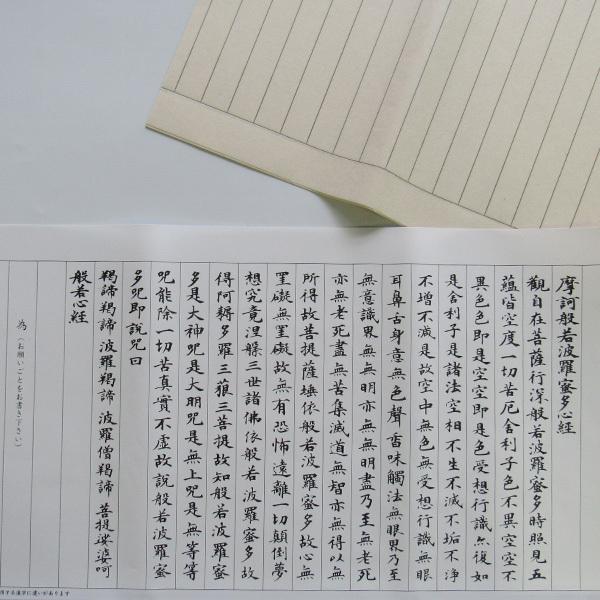 摩訶般若波羅蜜多心経
観自在菩薩行深般若波羅蜜多時照見五
蘊皆空度一切苦厄舍利子色不異空空不
異色色即是空空即是色受想行識亦復如
是舍利子是諸法空相不生不滅不垢不浄
不増不減是故空中無色無受想行識無眼
耳鼻舌身意無色聲香味觸法無眼界乃至
無意識界無無明亦無無明盡乃至無老死
亦無老死盡無苦集滅道無智亦無得以無
所得故菩提薩埵依般若波羅蜜多故心無
罣礙無罣礙故無有恐怖遠離一切顛倒夢
想究竟涅槃三世諸佛依般若波羅蜜多故
得阿耨多羅三藐三菩提故知般若波羅蜜
多是大神呪是大明呪是無上呪是無等等
呪能除一切苦真實不虚故説般若波羅蜜
多呪即説呪曰
羯諦羯諦 波羅羯諦 波羅僧羯諦 菩提娑婆呵
般若心経
為（お願いごとをお書き下さい）
する漢字に違いがあります